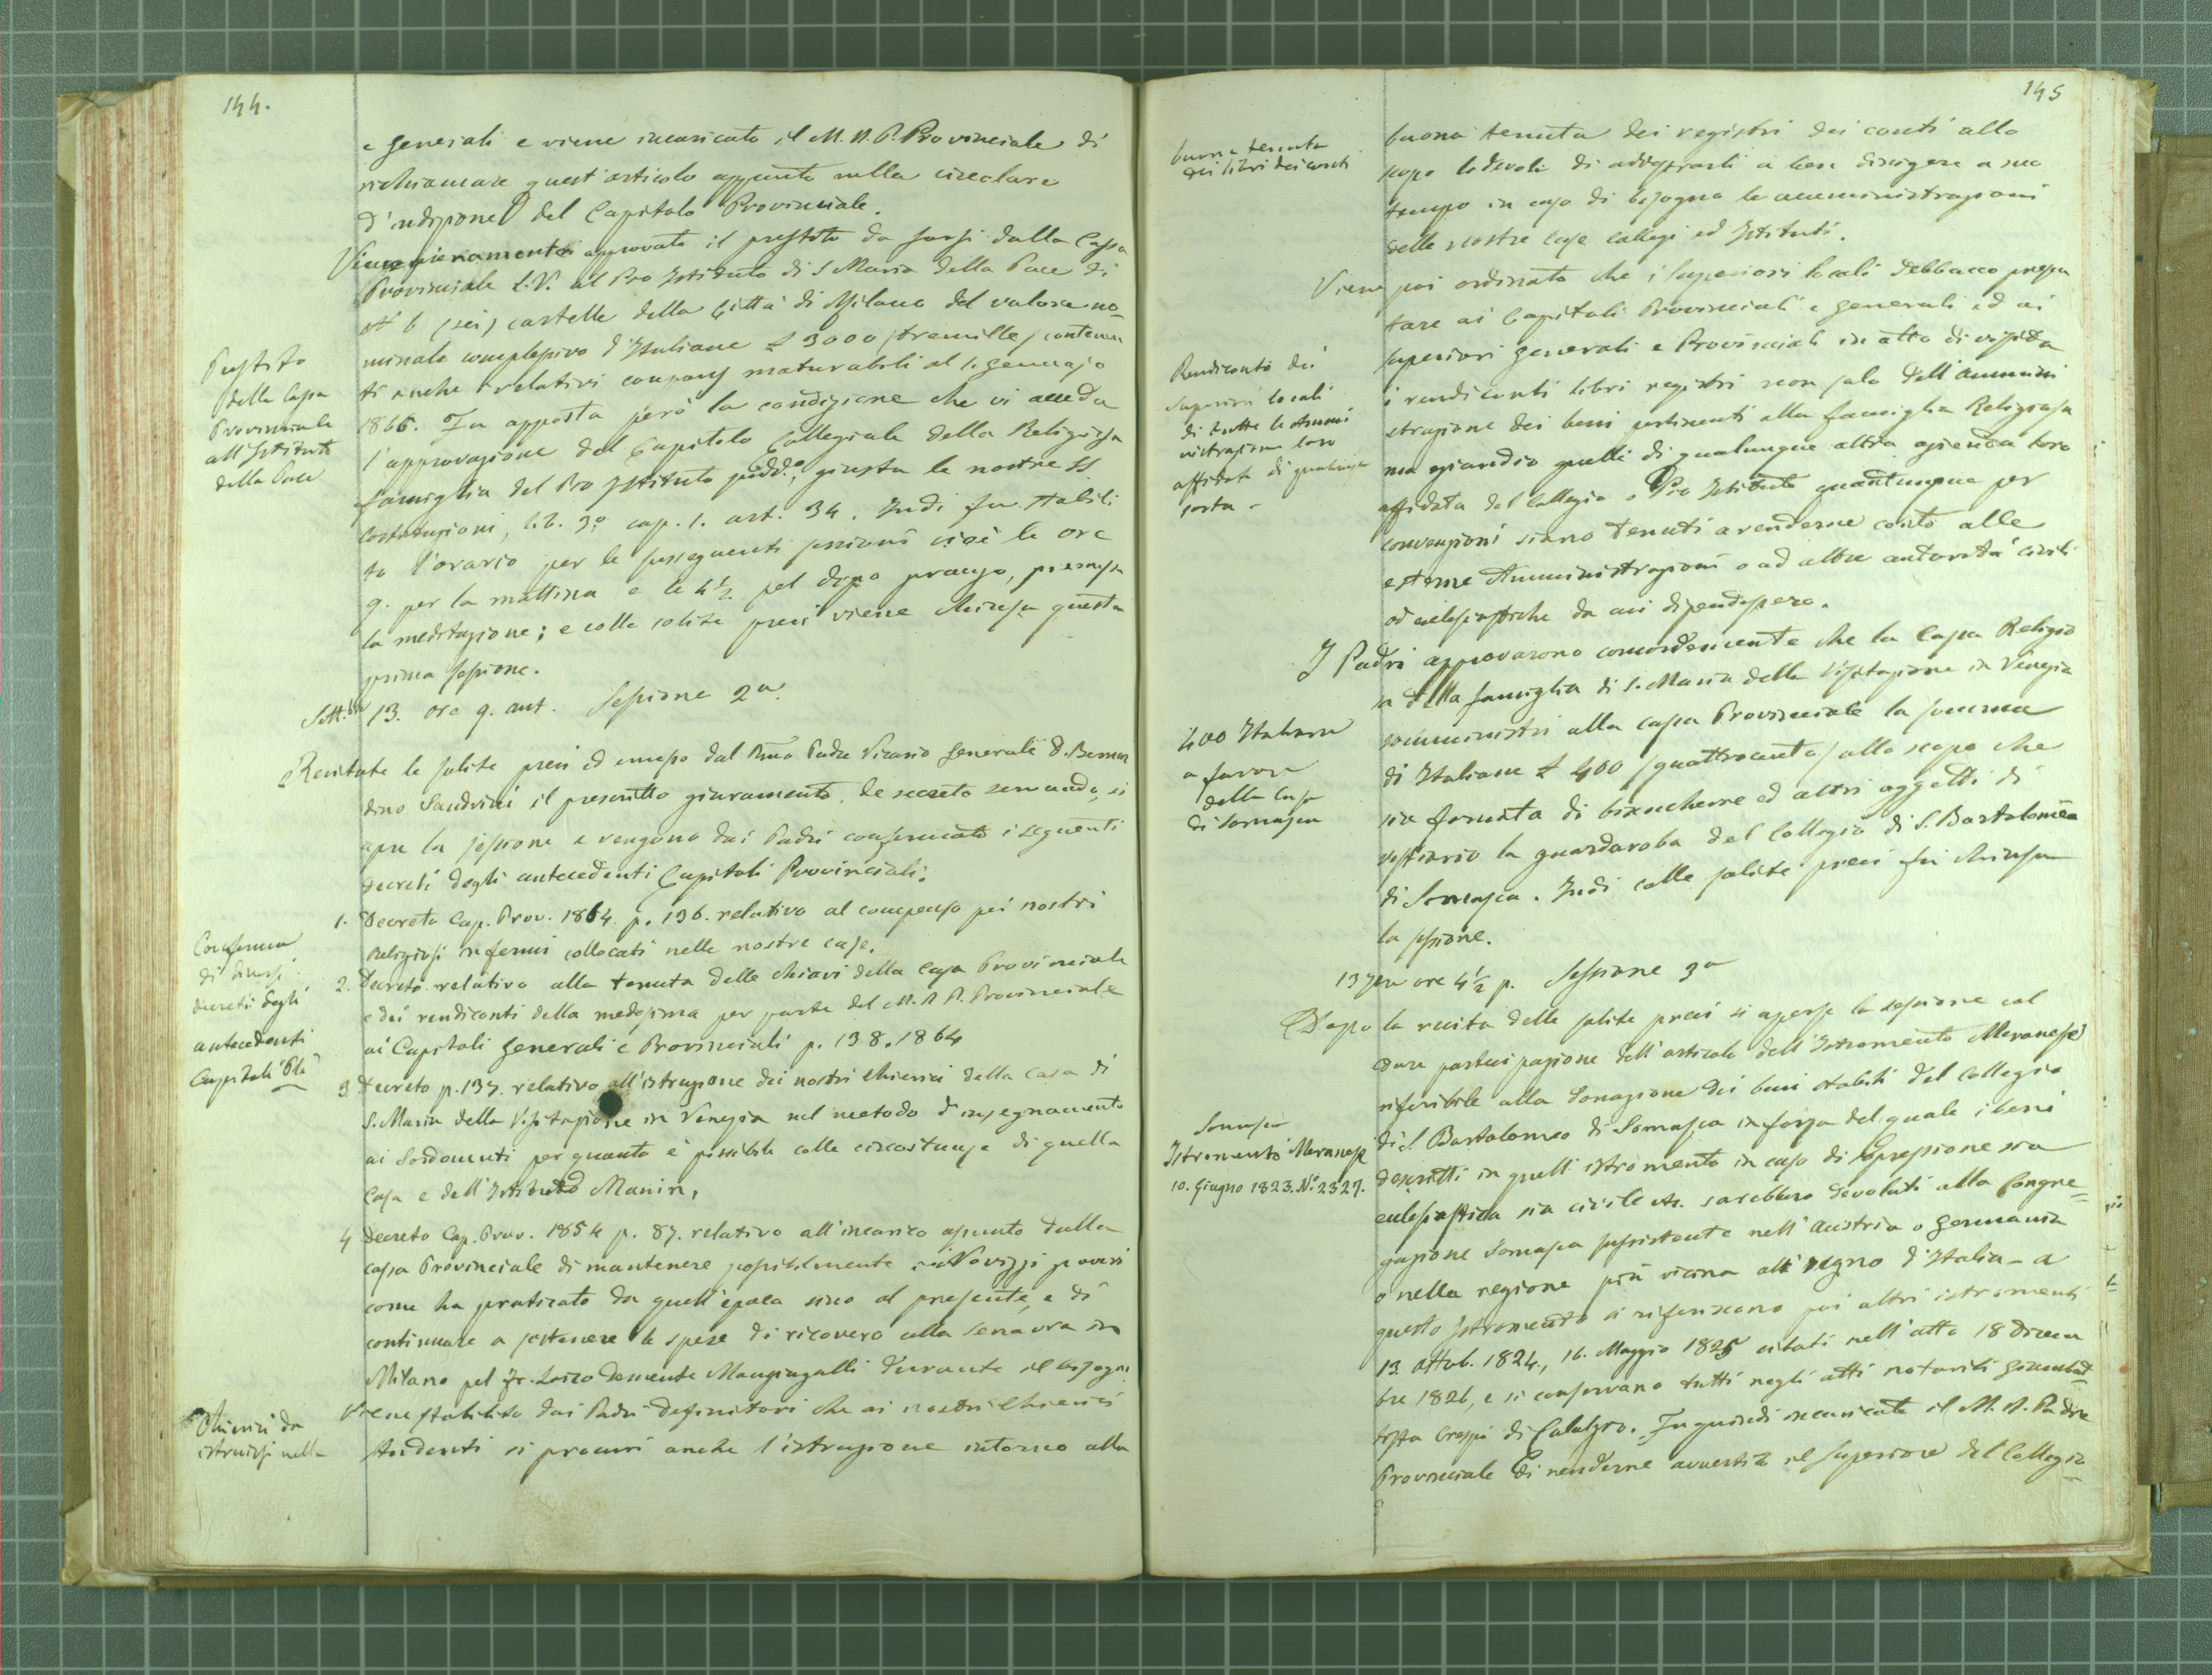 144.
e generali e viene incaricato il M. R. P. Provinciale di
richiamare quest'articolo appunto nella circolare
d'indizione del Capitolo Provinciale.
Viene pienamente approvato il prestito da farsi dalla Cassa
Provinciale L. V. al Pio Istituto di S Maria della Pace di
N 6 (sei) cartelle della Città di Milano del valore no-
minale complessivo d'Italiane £ 3000 (tremille) contenen
ti anche i relativi coupons maturabili al 1. Gennajo
1866. Fu apposta però la condizione che vi acceda
l'approvazione del Capitolo Collegiale della Religiosa
famiglia del Pio Istituto sudd.o, giusta le nostre SS
Costituzioni, lib. 3.o cap. 1. art. 34. Indi fu stabili
to l'orario per le susseguenti sessioni cioè le ore
9. per la mattina e le 4½ pel dopo pranzo, premessa
la meditazione; e colle solite preci viene chiusa questa
prima sessione.
Prestito
della Cassa
Provinciale
all'Istituto
della Pace
Sett. 13. ore 9. ant. Sessione 2a.
Recitate le solite preci ed emesso dal Rmo Padre Vicario Generale D. Bernar
dino Sandrini il prescritto giuramento de secreto servando, si
apre la sessione e vengono dai Padri confermati i seguenti
decreti degli antecedenti Capitoli Provinciali.
1. Decreto Cap. Prov. 1864. p. 136. relativo al compenso pei nostri
Religiosi infermi collocati nelle nostre case.
2. Decreto relativo alla tenuta delle chiavi della Cassa Provinciale
e dei rendiconti della medesima per parte del M. R. P. Provinciale
ai Capitoli Generali e Provinciali p. 138. 1864
3. Decreto p. 137. relativo all'istruzione dei nostri Chierici della Casa di
S. Maria della Visitazione in Venezia nel metodo d'insegnamento
ai Sordomuti per quanto è possibile colle circostanze di quella
Casa e dell'Istituto Manin.
4 Decreto Cap. Prov. 1854 p. 87. relativo all'incarico assunto dalla
cassa Provinciale di mantenere possibilmente i Novizzi poveri
come ha praticato da quell'epoca sino al presente, e di
continuare a sostenere le spese di ricovero alla Senavra in
Milano pel Fr. Laico demente Mangiagalli durante il bisogno.
Viene stabilito dai Padri Definitori che ai nostri Chierici
studenti si procuri anche l'istruzione intorno alla
Conferma
di diversi
decreti degli
antecedenti
Capitoli Pli
Chierici da
istruirsi nella
145
buona tenuta
dei libri dei conti
buona tenuta dei registri dei conti allo
scopo lodevole di addestrarli a ben dirigere a suo
tempo in caso di bisogno le amministrazioni
delle nostre Case Collegi ed Istituti.
Viene poi ordinato che i Superiori locali debbano presen
tare ai Capitoli Provinciali e generali ed ai
superiori generali e Provinciali in atto di visita
i rendiconti libri registri non solo dell'ammini
strazione dei beni pertinenti alla famiglia Religiosa
ma eziandio quelli di qualunque altra azienda loro
affidata del Collegio o Pio Istituto quantunque per
convenzioni siano tenuti a renderne conto alle
esterne Amministrazioni o ad altre autorità civili
od ecclesiastiche da cui dipendessero.
Rendiconti dei
Superiori locali
di tutte le Ammi
nistrazioni loro
affidate di qualunque
sorta -
I Padri approvarono concordemente che la Cassa Religio
sa della famiglia di S. Maria della Visitazione in Venezia
somministri alla cassa Provinciale la somma
di Italiane £ 400 (quattrocento) allo scopo che
sia fornita di biancherie ed altri oggetti di
vestiario la guardaroba del Collegio di S. Bartolomeo
di Somasca. Indi colle solite preci fu chiusa
la sessione.
400 Italiane
a favore
della Casa
di Somasca
13 7bre ore 4½ p. Sessione 3a
Dopo la recita delle solite preci si aperse la sessione col
dare partecipazione dell'articolo dell'Istromento Meranesi
riferibile alla donazione dei beni stabili del Collegio
di S. Bartolomeo di Somasca in forza del quale i beni
descritti in quell'istromento in caso di Soppressione sia
ecclesiastica sia civile etc. sarebbero devoluti alla Congre=
gazione Somasca sussistente nell'Austria o Germania
o nella regione più vicina all regno d'Italia - a
questo Istromento si riferiscono poi altri istromenti
13 Ottob. 1824, 16. Maggio 1825 citati nell'atto 18 Dicem
bre 1826, e si conservano tutti negli atti notarili Giambat=
tista Crespi di Calolzio. Fu quindi incaricato il M. R. Padre
Provinciale di renderne avvertito il Superiore del Collegio
Somasca
Istromento Meranesi
10. Giugno 1823. No. 2327.